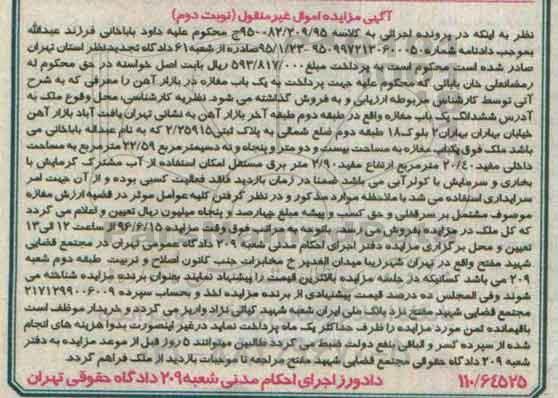 آگهی مزایده اموال غیرمنقول (نوبت دوم)
نظر به اینکه در پرونده اجرائی به کلاسه 95-0082/209/95ج محکوم علیه داود باباخانی فرزند عبدالله
بموجب دادنامه شماره 9509972130600050-95/1/23 صادره از شعبه 61 دادگاه تجدیدنظر استان تهران
صادر شده است محکوم است به پرداخت مبلغ 593/817/000 ریال بابت اصل خواسته در حق محکوم له
رمضانعلی خان بابائی که محکوم علیه جهت پرداخت به یک باب مغازه در بازار آهن را معرفی که به شرح
آتی توسط کارشناس مربوطه ارزیابی و به فروش گذاشته می شود. نظریه کارشناسی: محل وقوع ملک به
آدرس ششدانگ یک باب مغازه واقع در طبقه دوم طبقه آخر بازار آهن به نشانی تهران یافت آباد بازار آهن
خیابان بهاران بهاران 2 بلوک 18 طبقه دوم ضلع شمالی به پلاک ثبتی 2/35915 که به نام عبداله باباخانی می
باشد ملک فوق یکباب مغازه به مساحت بیست و دو متر و پنجاه و نه دسیمتر مربع 22/59 مترمربع به مساحت
داخلی مفید 20/40 مترمربع ارتفاع مفید 2/90 متر برق مستقل امکان استفاده از آب مشترک گرمایش با
بخاری و سرمایش با کولر آبی می باشد ضمنا در زمان بازدید فاقد فعالیت کسبی بوده و از آن جهت امر
سرایداری استفاده می شد با ملاحظه موارد مذکور و در نظر گرفتن کلیه عوامل موثر در قضیه ارزش مغازه
موصوف مشتمل بر سرقفلی و حق کسب و پیشه مبلغ چهارصد و پنجاه میلیون ریال تعیین و اعلام می گردد
که کل ملک در مزایده بفروش می رسد. باتوجه به مراتب فوق وقت مزایده 96/6/15 از ساعت 12 الی 13
تعیین و محل برگزاری مزایده دفتر اجرای احکام مدنی شعبه 209 دادگاه عمومی تهران در مجتمع قضایی
شهید مفتح واقع در تهران شهرزیبا میدان الغدیر خ مخابرات جنب کانون اصلاح و تربیت طبقه دوم شعبه
209 می باشد کسانیکه در جلسه مزایده بالاترین قیمت را پیشنهاد نمایند بعنوان برنده مزایده شناخته می
شوند وفی المجلس ده درصد قیمت پیشنهادی از برنده مزایده اخذ و بحساب سپرده 2171299006009
مجتمع قضایی شهید مفتح نزد بانک ملی ایران شعبه شهید کیائی نژاد واریز می گردد و خریدار موظف است
باقیمانده ثمن مورد مزایده را ظرف حداکثر یک ماه پرداخت نماید در غیر اینصورت بدوا هزینه های انجام
شده از سپرده کسر و الباقی بنفع دولت ضبط می گردد طالبین میتوانند 5 روز قبل از موعد مزایده به دفتر
شعبه 209 دادگاه حقوقی مجتمع قضایی شهید مفتح مراجعه تا موجبات بازدید از ملک فراهم گردد
110/64525 دادورز اجرای احکام مدنی شعبه 209 دادگاه حقوقی تهران